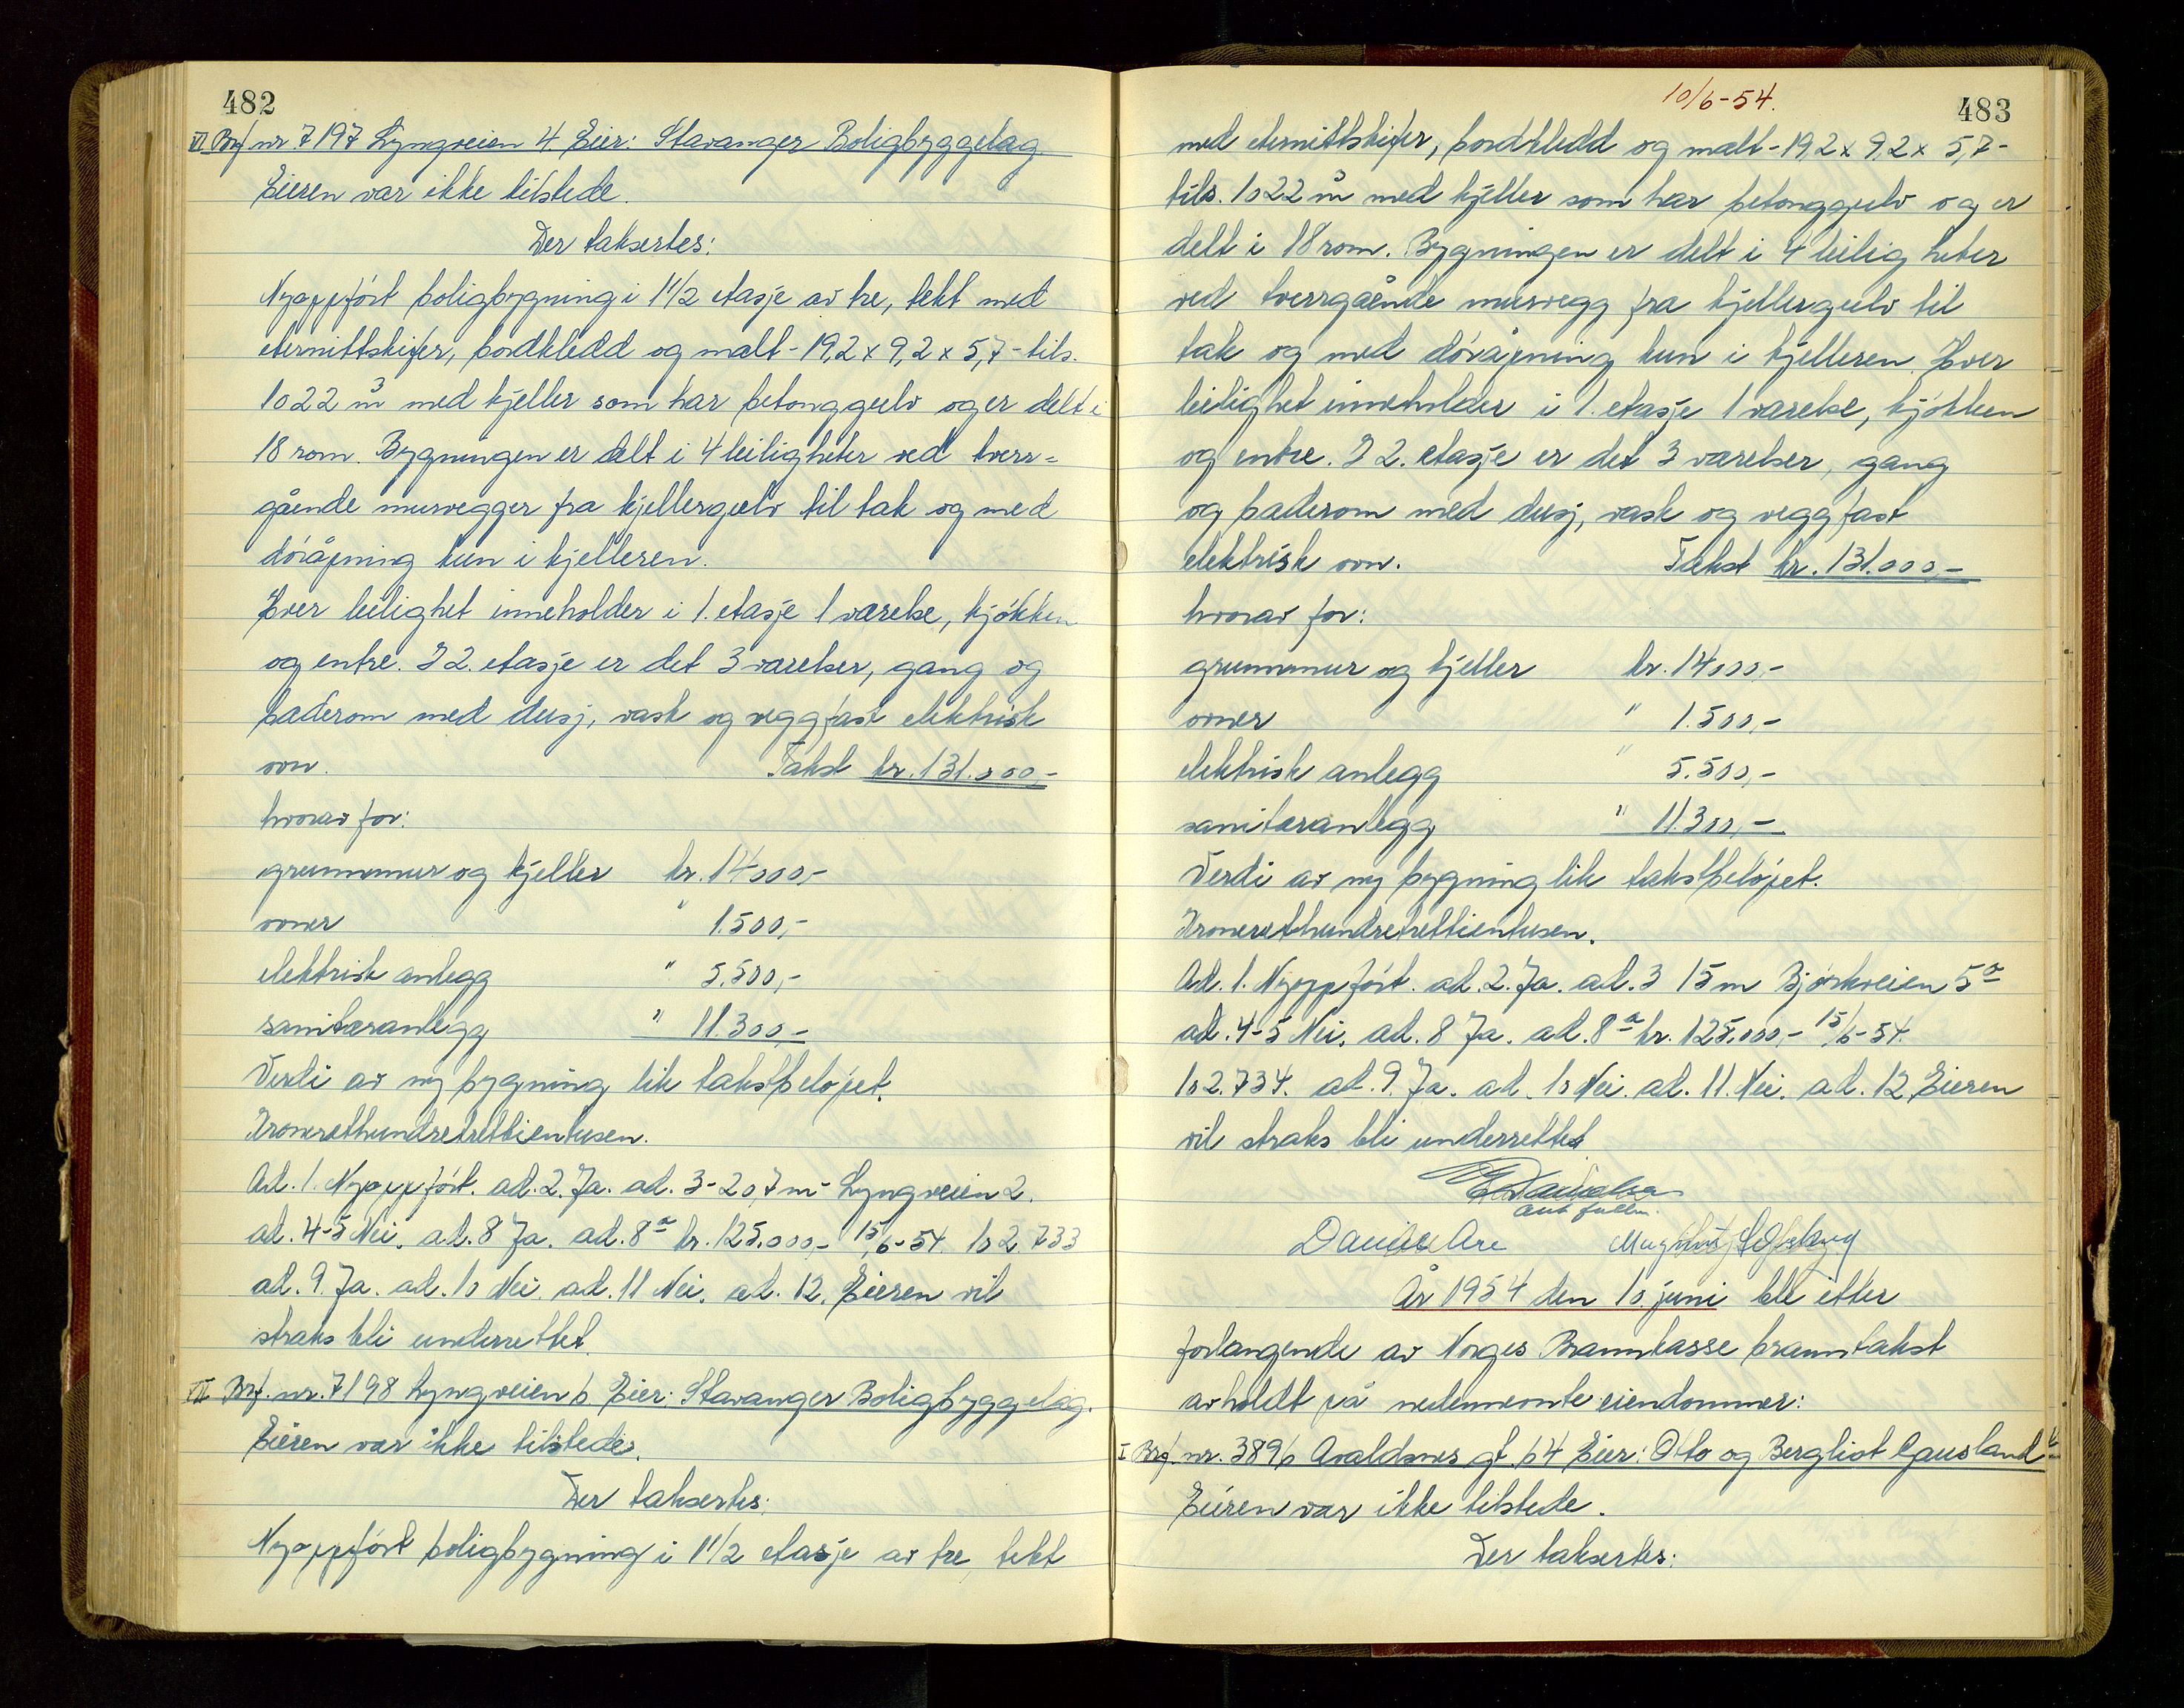 482
VI Brf nr. 7197 Lyngveien 4 Eier: Stavanger Boligbyggelag
Eieren var ikke tilstede.
Der taksertes:
Nyoppfört boligbygning i 1 1/2 etasje av tre, tekt med
eternittskifer, bordkledd og malt - 19,2 x 9,2 x 5,7 - tils.
1022 m³ med kjeller som har betonggulv og er delt i
18 rom. Bygningen er delt i 4 leiligheter ved tverr=
gående murvegger fra kjellergulv til tak og med
döråpning kun i kjelleren.
Hver leilighet inneholder i 1. etasje 1 værelse, kjökken
og entre. I 2. etasje er det 3 værelser, gang og
baderom med dusj, vask og veggfast elektrisk
ovn. Takst kr. 131.000,-
hvorav for:
grunnmur og kjeller kr. 14000,-
ovner " 1.500,-
elektrisk anlegg " 5.500,-
sanitæranlegg " 11.300,-
Verdi av ny bygning lik takstbelöpet.
Kronerethundretrettientusen.
Ad. 1. Nyoppfört. ad. 2. Ja. ad. 3 - 20,7 m - Lyngveien 2.
ad. 4-5 Nei. ad. 8 Ja. ad. 8a kr. 125.000,- 15/6-54. 102733
ad. 9. Ja. ad. 10 Nei. ad. 11 Nei. ad. 12. Eieren vil
straks bli underrettet.
VII Brf. nr. 7198 Lyngveien 6 Eier: Stavanger Boligbyggelag.
Eieren var ikke tilstede.
Der taksertes:
Nyoppfört boligbygning i 1 1/2 etasje av tre, tekt
10/6-54.
483
med eternittskifer, bordkledd og malt - 19,2 x 9,2 x 5,7 -
tils. 1022 m³ med kjeller som har betonggulv og er
delt i 18 rom. Bygningen er delt i 4 leiligheter
ved tverrgående murvegg fra kjellergulv til
tak og med döråpning kun i kjelleren. Hver
leilighet inneholder i 1. etasje 1 værelse, kjökken
og entre. I 2. etasje er det 3 værelser, gang
og baderom med dusj, vask og veggfast
elektrisk ovn. Takst kr. 131.000,-
hvorav for:
grunnmur og kjeller kr. 14000,-
ovner " 1.500,-
elektrisk anlegg " 5.500,-
sanitæranlegg " 11.300,-
Verdi av ny bygning lik takstbelöpet.
Kronerethundretrettientusen.
Ad. 1. Nyoppfört. ad. 2. Ja. ad. 3 15 m Björkveien 5a
ad. 4-5 Nei. ad. 8 Ja. ad. 8a kr. 125.000,- 15/6-54.
102.734. ad. 9. Ja. ad. 10 Nei. ad. 11. Nei. ad. 12. Eieren
vil straks bli underrettet.
År 1954 den 10. juni ble etter
forlangende av Norges Brannkasse branntakst
avholdt på nedennevnte eiendommer:
I Brf. nr. 3896 Avaldsnes gt. 64 Eier: Otto og Bergliot Gausland
Eieren var ikke tilstede.
Der taksertes: